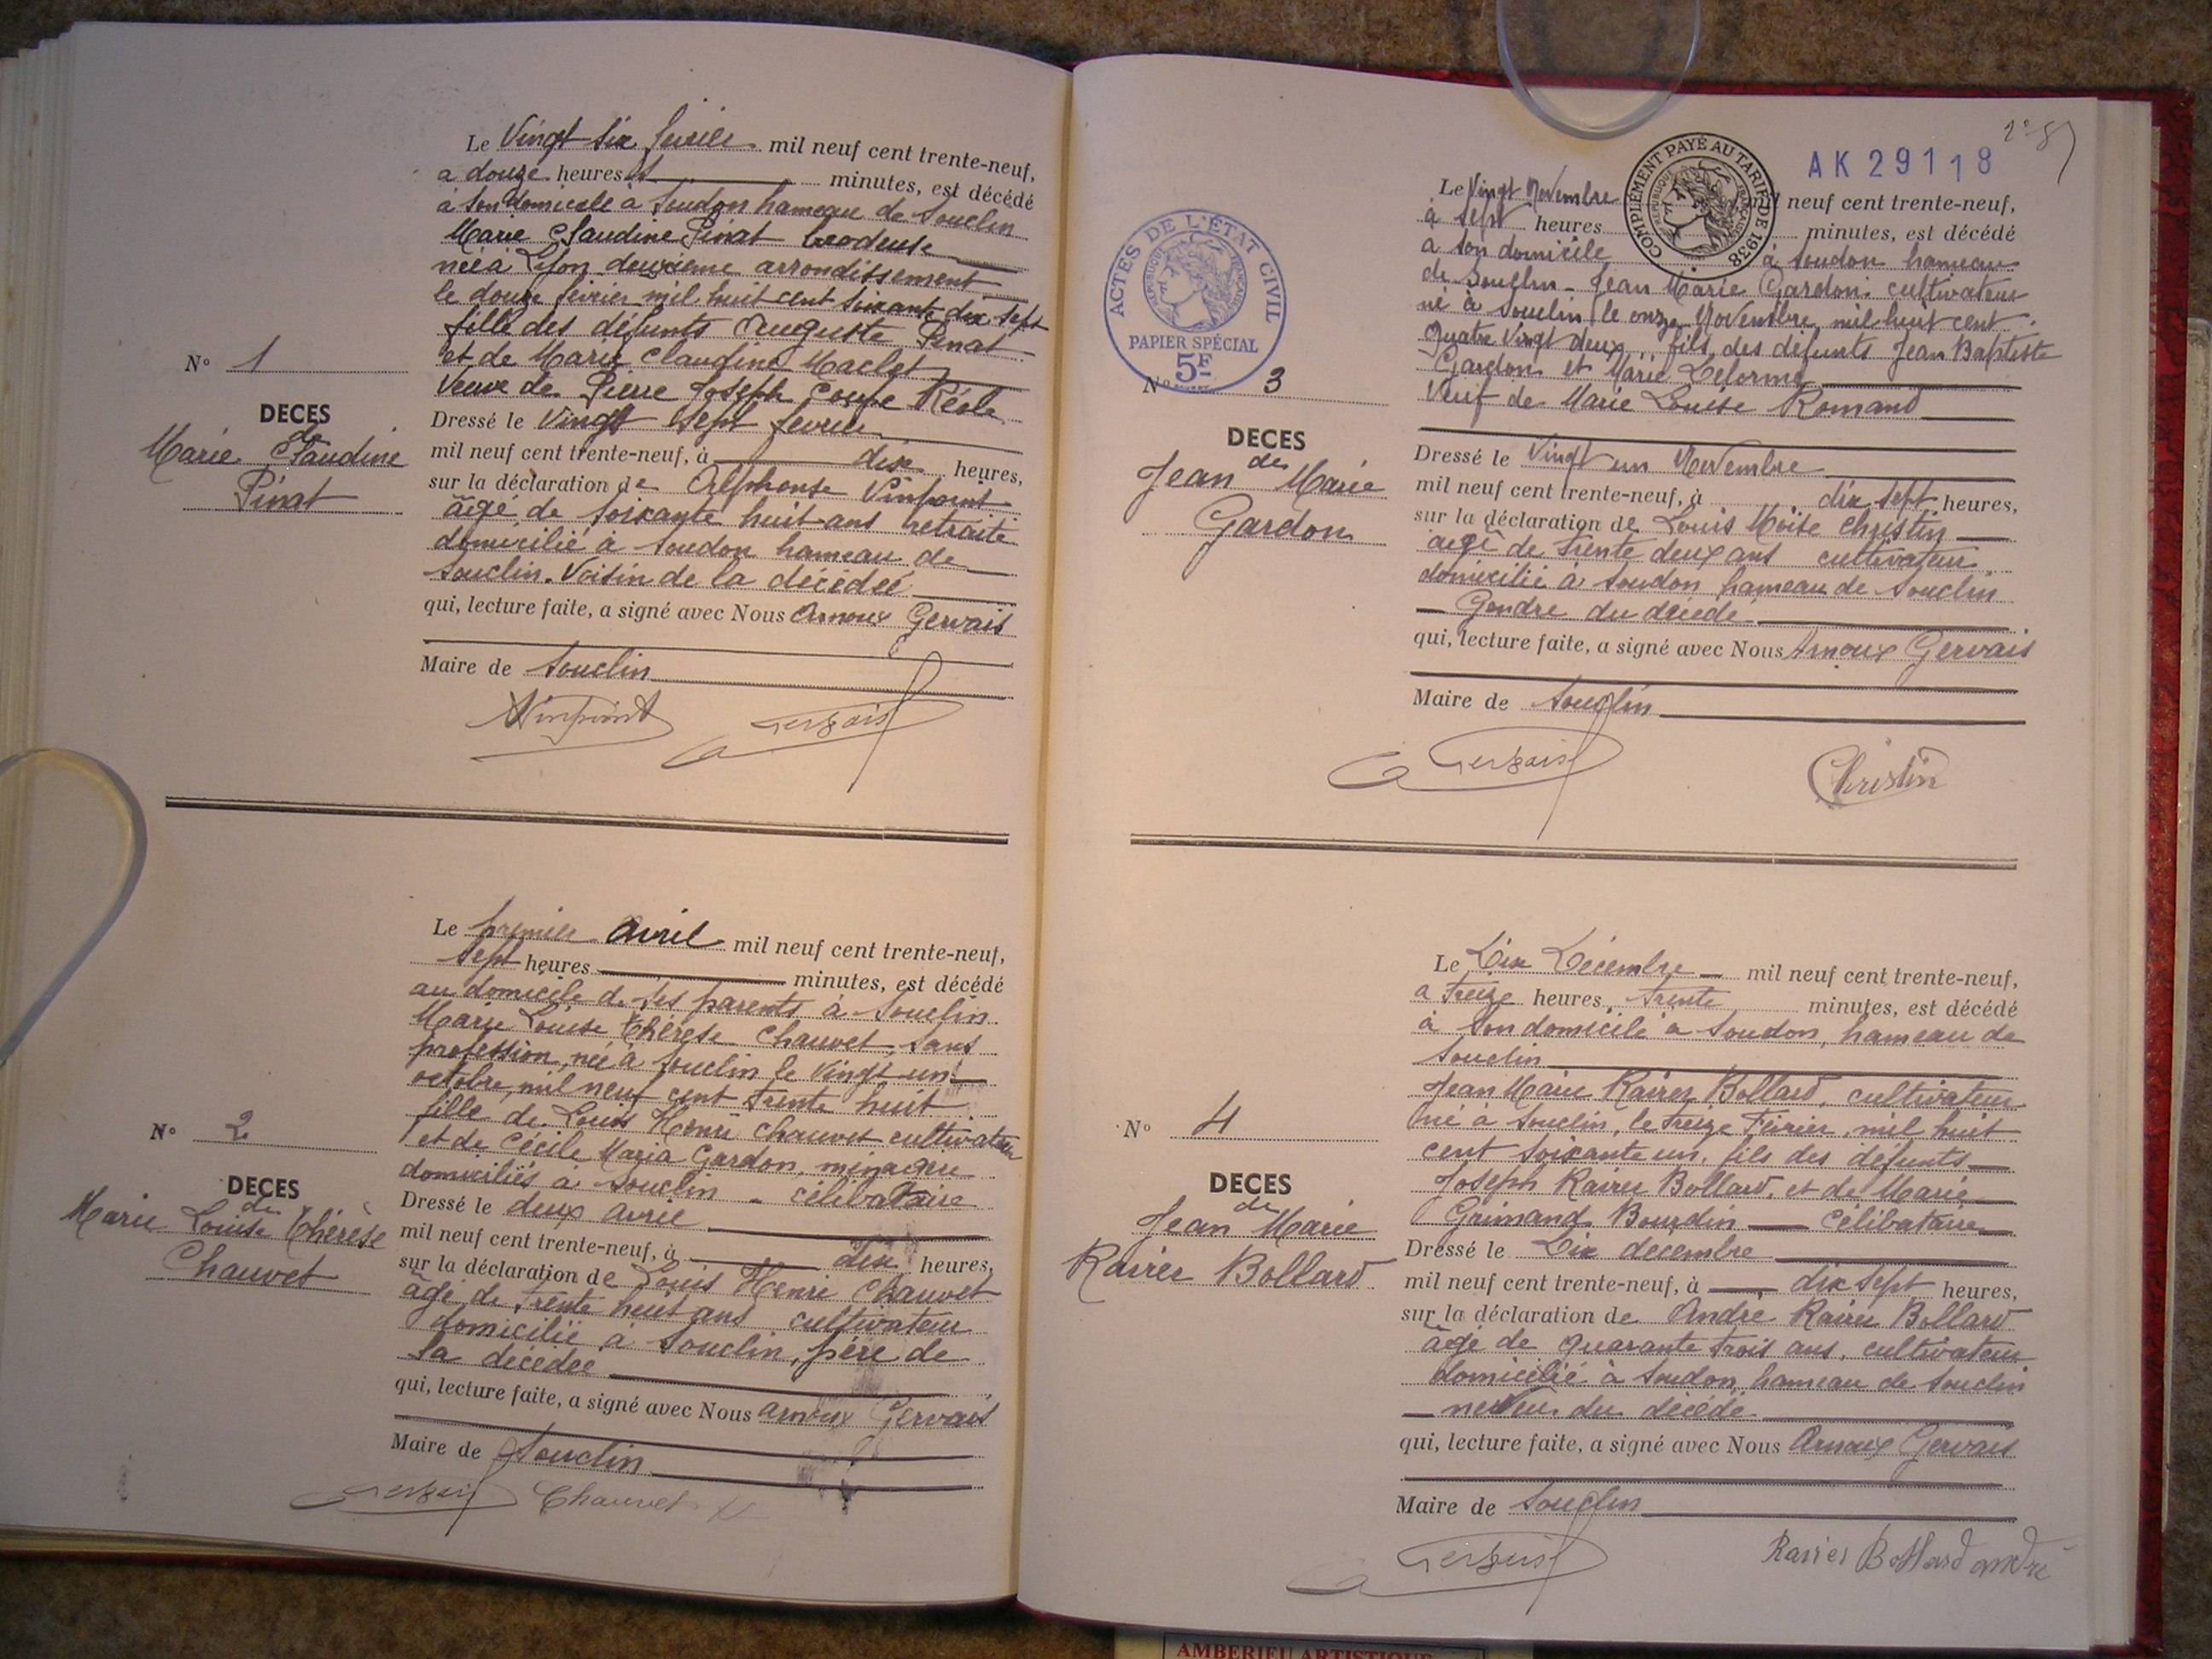 Le Vingt six fevrier mil neuf cent trente-neuf,
a douze heures minutes, est décédé
à son domicile à Soudon hameau de Souclin
Marie Claudine Pinat brodeuse
née à Lyon deuxième arrondissement
le douze février mil huit cent soixante dix sept
fille des défunts Auguste Pinat
et de Marie Claudine Maclet
Veuve de Pierre Joseph
N° 1
DECES
de
Marie Claudine
Pinat
Dressé le Vingt sept fevrier
mil neuf cent trente-neuf, à dix heures,
sur la déclaration de Alphonse Vinpoint
âgé de soixante huit ans retraité
domicilié à Soudon hameau de
Souclin. Voisin de la décédée
qui, lecture faite, a signé avec Nous Arnoux Gervais
Maire de Souclin
Vinpoint Gervais
Le premier Avril mil neuf cent trente-neuf,
sept heures minutes, est décédé
au domicile de ses parents à Souclin
Marie Louise Thérèse Chauvet, sans
profession, née à Souclin le vingt un
octobre, mil neuf cent trente huit
fille de Louis Henri Chauvet cultivateur
et de Cécile Maria Gardon, ménagère
domiciliés à Souclin - célibataire
N° 2
DECES
de
Marie Louise Thérèse
Chauvet
Dressé le deux avril
mil neuf cent trente-neuf, à dix heures,
sur la déclaration de Louis Henri Chauvet
âgé de trente huit ans cultivateur
domicilié à Souclin, père de
la décédée
qui, lecture faite, a signé avec Nous Arnoux Gervais
Maire de Souclin
Gervais Chauvet
AK 29118
COMPLÉMENT PAYÉ AU TARIF DE 1938
REPUBLIQUE FRANÇAISE
ACTES DE L'ÉTAT CIVIL
REPUBLIQUE FRANÇAISE
PAPIER SPÉCIAL
5F
Le Vingt Novembre neuf cent trente-neuf,
à sept heures minutes, est décédé
à son domicile à Soudon hameau
de Souclin - Jean Marie Gardon. cultivateur
né à Souclin le onze Novembre mil huit cent
quatre vingt deux fils des défunts Jean Baptiste
Gardon et Marie Delorme
Veuf de Marie Louise Romand
N° 3
DECES
de
Jean Marie
Gardon
Dressé le Vingt un Novembre
mil neuf cent trente-neuf, à dix sept heures,
sur la déclaration de Louis Moïse Christin
âgé de trente deux ans cultivateur
domicilié à Soudon hameau de Souclin
Gendre du décédé
qui, lecture faite, a signé avec Nous Arnoux Gervais
Maire de Souclin
Gervais Christin
Le Dix Décembre mil neuf cent trente-neuf,
a treize heures, trente minutes, est décédé
à son domicile à Soudon, hameau de
Souclin
Jean Marie Ravier Bollard, cultivateur
né à Souclin, le treize Février, mil huit
cent soixante un, fils des défunts
Joseph Ravier Bollard, et de Marie
Grimand Bourdin célibataire
N° 4
DECES
de
Jean Marie
Ravier Bollard
Dressé le Dix décembre
mil neuf cent trente-neuf, à dix sept heures,
sur la déclaration de André Ravier Bollard
âgé de quarante trois ans, cultivateur
domicilié à Soudon, hameau de Souclin
neveu du décédé
qui, lecture faite, a signé avec Nous Arnoux Gervais
Maire de Souclin
Gervais Ravier Bollard andré
AMBERIEU ARTISTIQUE